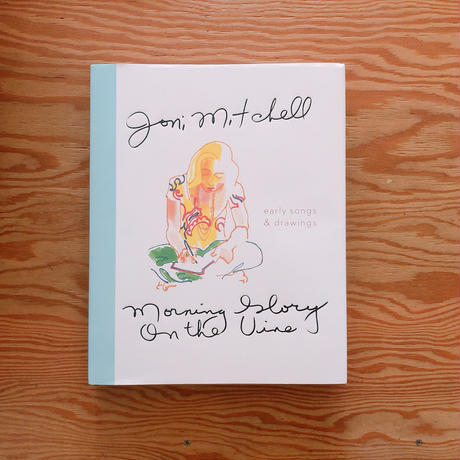 Joni Mitchell
early songs
& drawings
Morning Glory
On the Vine